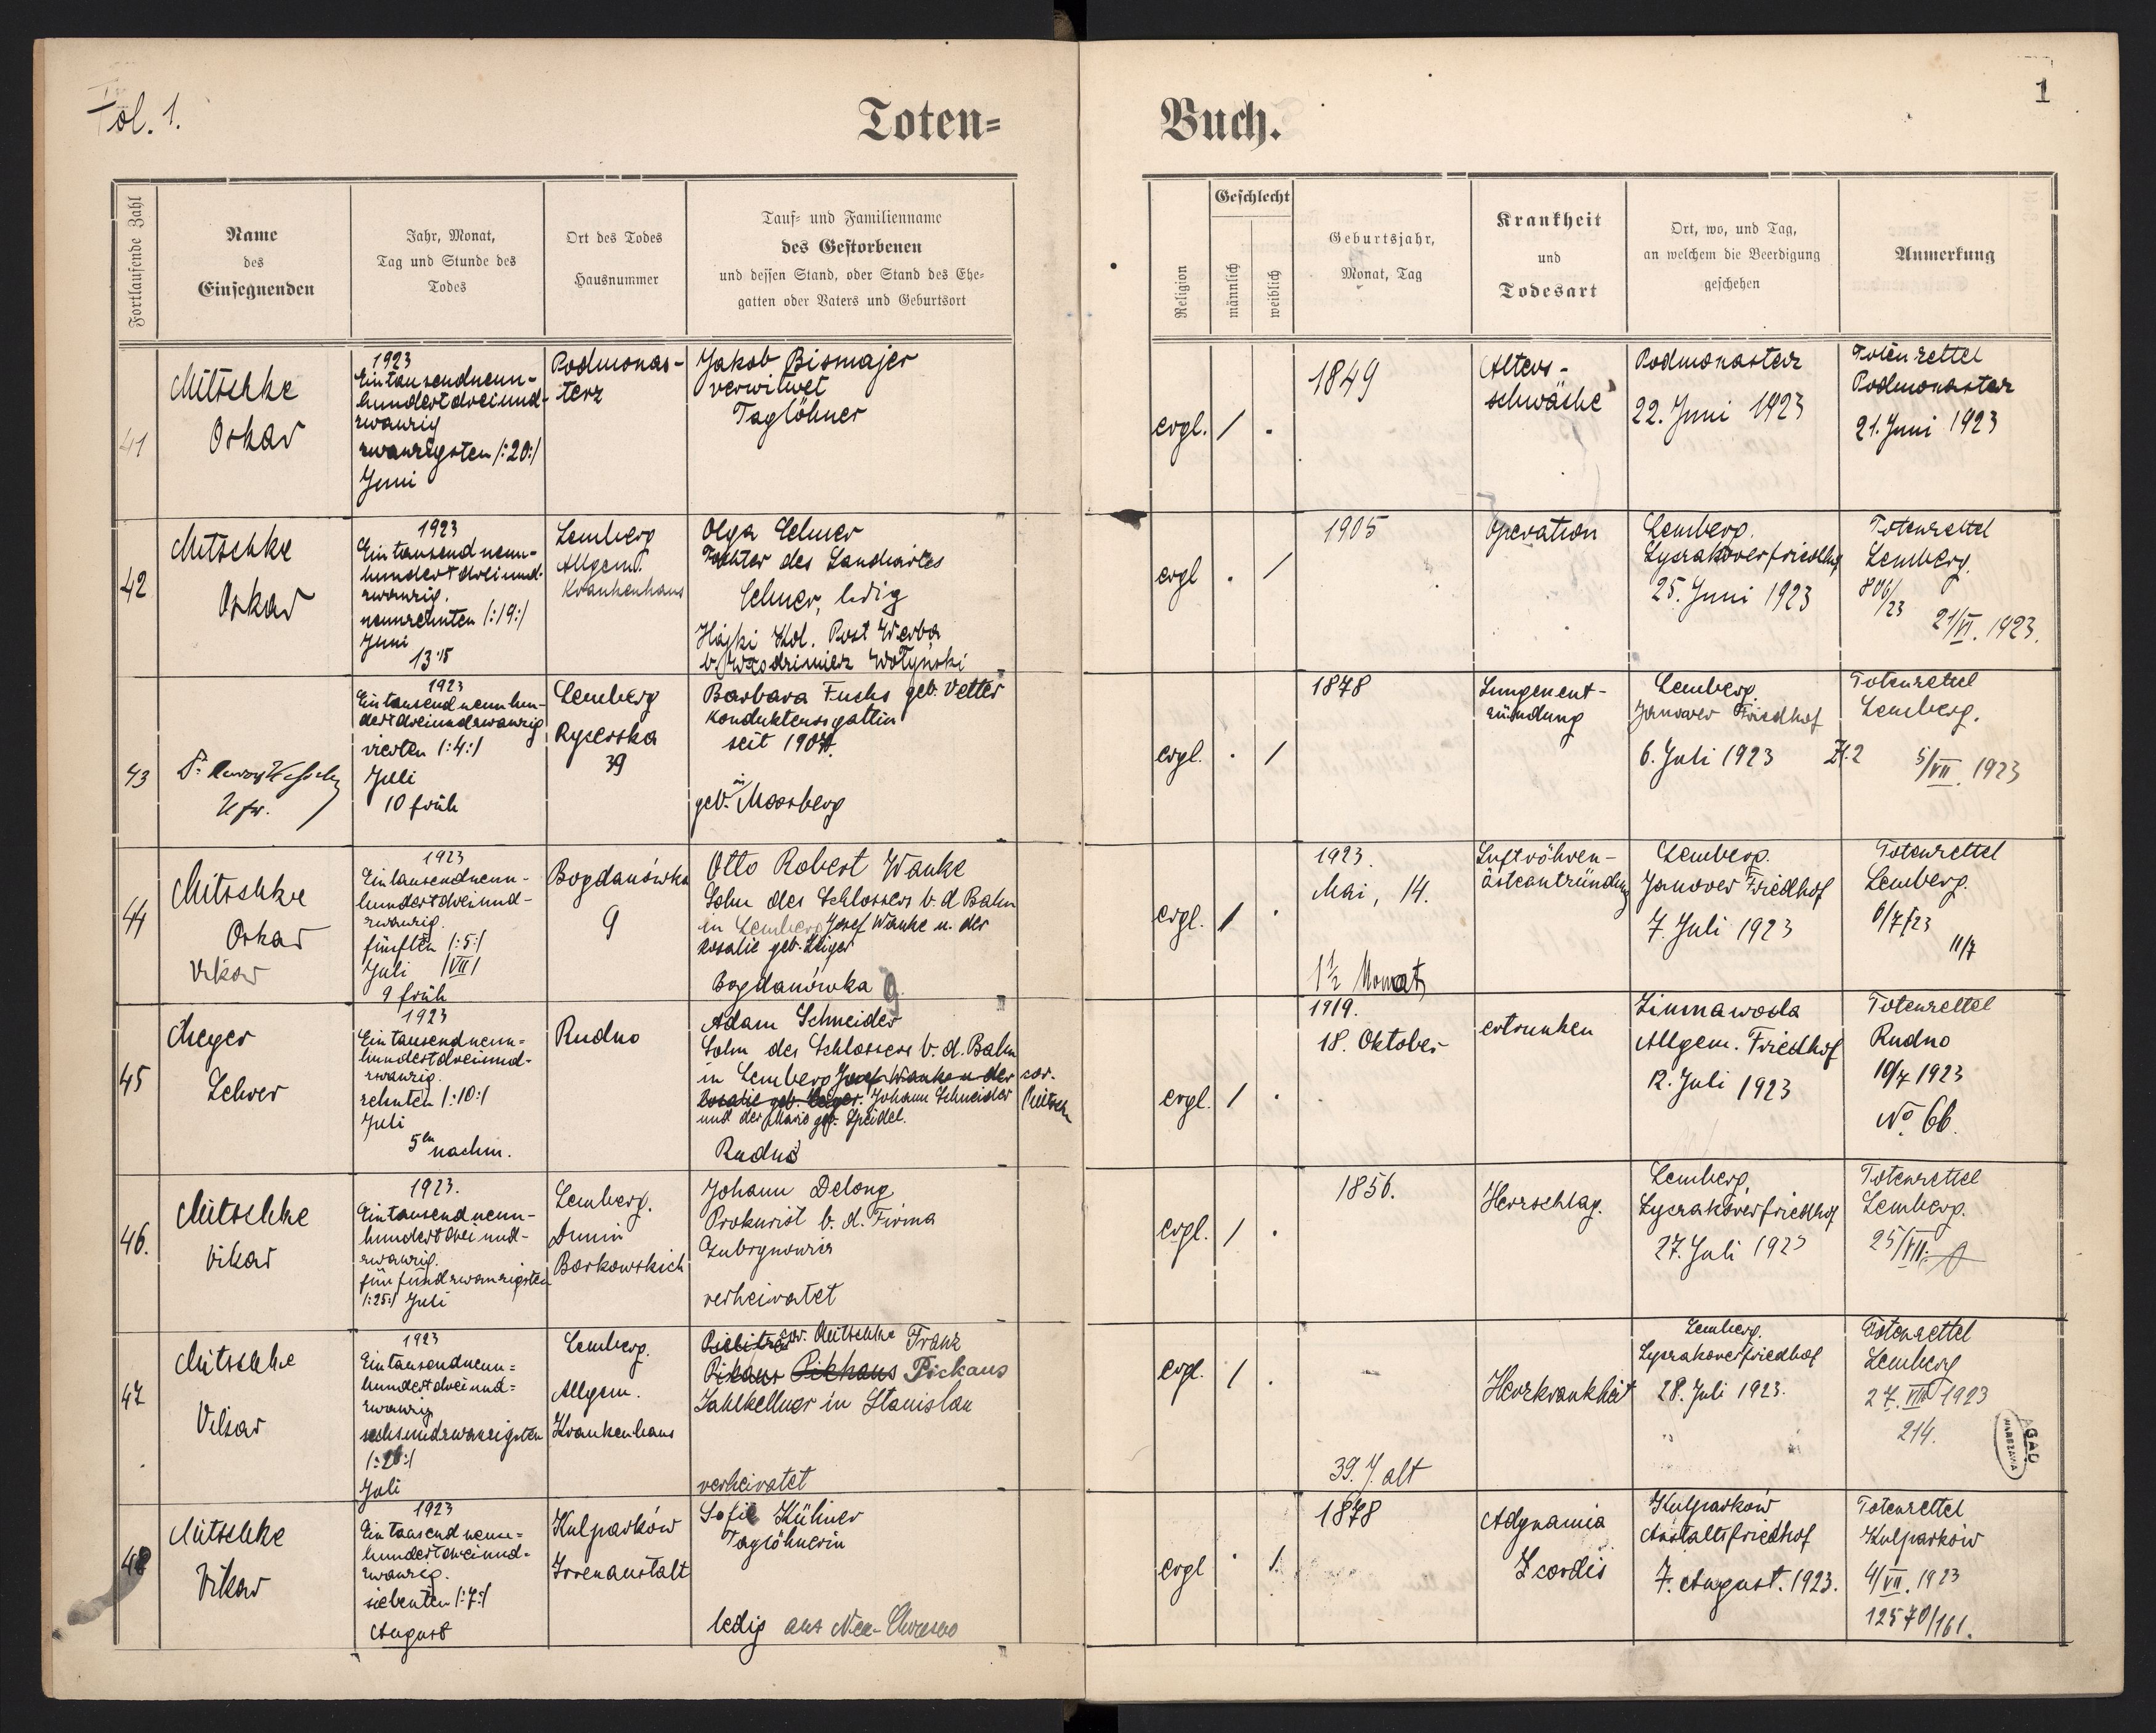 Fol. 1.
Toten=
Buch.
1
Fortlaufende Zahl
Name
des
Einsegnenden
Jahr, Monat,
Tag und Stunde des
Todes
Ort des Todes
Hausnummer
Tauf= und Familienname
des Gestorbenen
und dessen Stand, oder Stand des Ehe=
gatten oder Vaters und Geburtsort
Religion
Geschlecht
männlich
weiblich
Geburtsjahr,
Monat, Tag
Krankheit
und
Todesart
Ort, wo, und Tag,
an welchem die Beerdigung
geschehen
Anmerkung
41
Mitschke
Oskar
1923
Eintausendneun-
hundertdreiund-
zwanzig
zwanzigsten /:20:/
Juni
Podmonas-
terz
Jakob Bismajer
verwitwet
Taglöhner
evgl. / .
1849
Alters-
schwäche
Podmonaster
22. Juni 1923
Totenzettel
Podmonaster
21. Juni 1923
42
Mitschke
Oskar
1923
Eintausend neun-
hundert dreiund-
zwanzig.
neunzehnten /:19:/
Juni
13 15
Lemberg
Allgem.
Krankenhaus
Olga Lehner
Tochter des Landwirtes
Lehner, ledig
Hajki Kol. Post Werba
b. Włodzimierz Wołyński
evgl . /
1905
Operation
Lemberg.
Lyczakoverfriedhof
25. Juni 1923
Totenzettel
Lemberg.
806/23
21/VI. 1923.
43
1923
Eintausendneunhun-
dertdreiundzwanzig
vierten /:4:/
Juli
10 früh
Lemberg
Rycerska
39
Barbara Fuchs geb. Vetter
Kondukteursgattin
seit 1904.
geb. in Moosberg
evgl. . /
1878
Lungenent-
zündung
Lemberg.
Janower Friedhof
6. Juli 1923
Totenzettel
Lemberg.
Zl. 2 5/VII. 1923
44
Mitschke
Oskar
Vikar
1923
Eintausendneun-
hundertdreiund-
zwanzig.
fünften /:5:/
Juli /VII/
9 früh
Bogdanówka
9
Otto Robert Wanke
Sohn des Schlossers b. d. Bahn
in Lemberg Josef Wanke u. der
Rosalie geb. Geiger
Bogdanówka 9.
evgl. / .
1923.
Mai, 14.
1½ Monat
Luftröhren-
ästeentzündung
Lemberg.
Janover Friedhof
7. Juli 1923
Totenzettel
Lemberg.
6/7/23
11/7
45
Meyer
Lehrer
1923
Eintausendneun=
hundertdreiund-
zwanzig.
zehnten /:10:/
Juli
5 nachm.
Rudno
Adam Schneider
Sohn des Schlossers b. d. Bahn
in Lemberg Josef Wanke u. der cor.
Rosalie geb. Geiger. Johann Schneider
und der Marie geb. Speidel.
Rudno
evgl. / .
1919.
18. Oktober
ertrunken
Zimnawoda
Allgem. Friedhof
12. Juli 1923
Totenzettel
Rudno
10/7 1923
No. 66.
46.
Mitschke
Vikar
1923.
Eintausendneun-
hundertdreiund-
zwanzig.
fünfundzwanzigsten
/:25:/ Juli
Lemberg.
Dunin
Borkowskich
Johann Delong
Prokurist b. d. Firma
verheiratet
evgl. / .
1856.
Herzschlag.
Lemberg,
Lyczakoverfriedhof
27. Juli 1923
Totenzettel
Lemberg.
25/VII.
47
Mitschke
Vikar
1923
Eintausendneun=
hundertdreiund=
zwanzig
sechsundzwanzigsten
/:26:/
Juli
Lemberg.
Allgem.
Krankenhaus
cor. Mitschke Franz
Pikaus Pikhaus Pickaus
Zahlkellner in Stanislau
verheiratet
evgl. / .
39. J. alt
Herzkrankheit
Lemberg.
Lyczakoverfriedhof
28. Juli 1923.
Totenzettel
Lemberg
27. VII 1923
214.
AGAD
WARSZAWA
48
Mitschke
Vikar
1923
Eintausend neun=
hundertdreiund=
zwanzig.
siebenten /:7:/
August
Kulparków
Irrenanstalt
Sofie Kühner
Taglöhnerin
ledig aus Neu-
evgl . /.
1878
Adynamia
cordis
Kulparków
Anstaltsfriedhof
7. August. 1923.
Totenzettel
Kulparków
4/VII. 1923
12570/161.